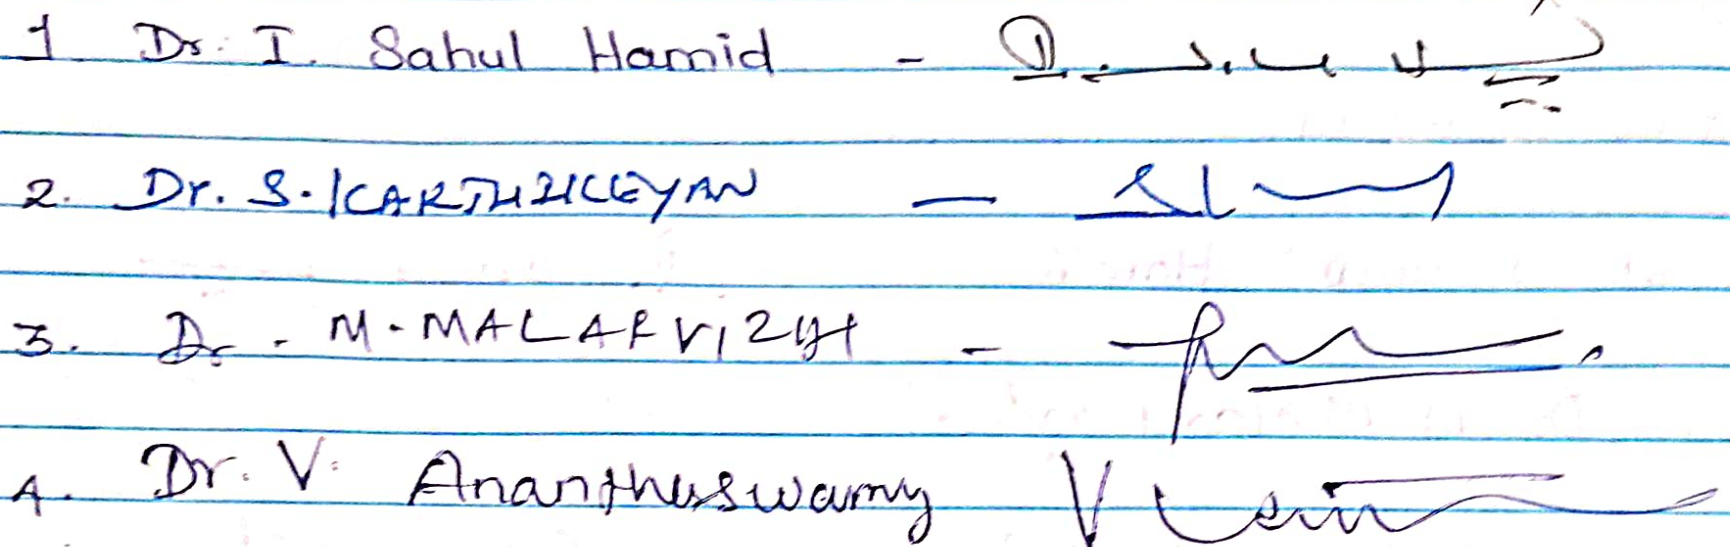 1 Dr. I. Sahul Hamid -
2. Dr. S. KARTHIKEYAN -
3. Dr. M. MALARVIZHI -
4. Dr. V. Ananthaswamy